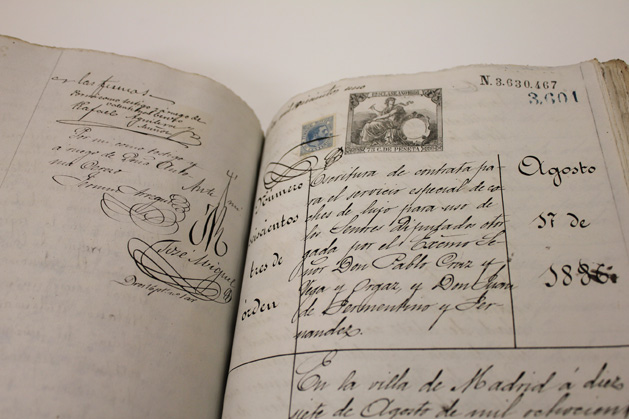 a las firmas
Rafael Aguilera
Muñoz
Por mi como testigo y
a ruego de Doña Anto
nia Orozco
Ante mí
José Miguel
N. 3.630.467
3.601
75 C. DE PESETA
Número
seiscientos
tres de
órden
Escritura de contrata pa-
ra el servicio especial de co-
ches de lujo para uso de
los Señores Diputados otor-
gada por el Excmo Se-
ñor Don Pablo Cruz y
y Orgaz, y Don Juan
de Fermentino y Fer-
nandez.
Agosto
17 de
1886.
En la villa de Madrid á diez
y siete de Agosto de mil ochocien